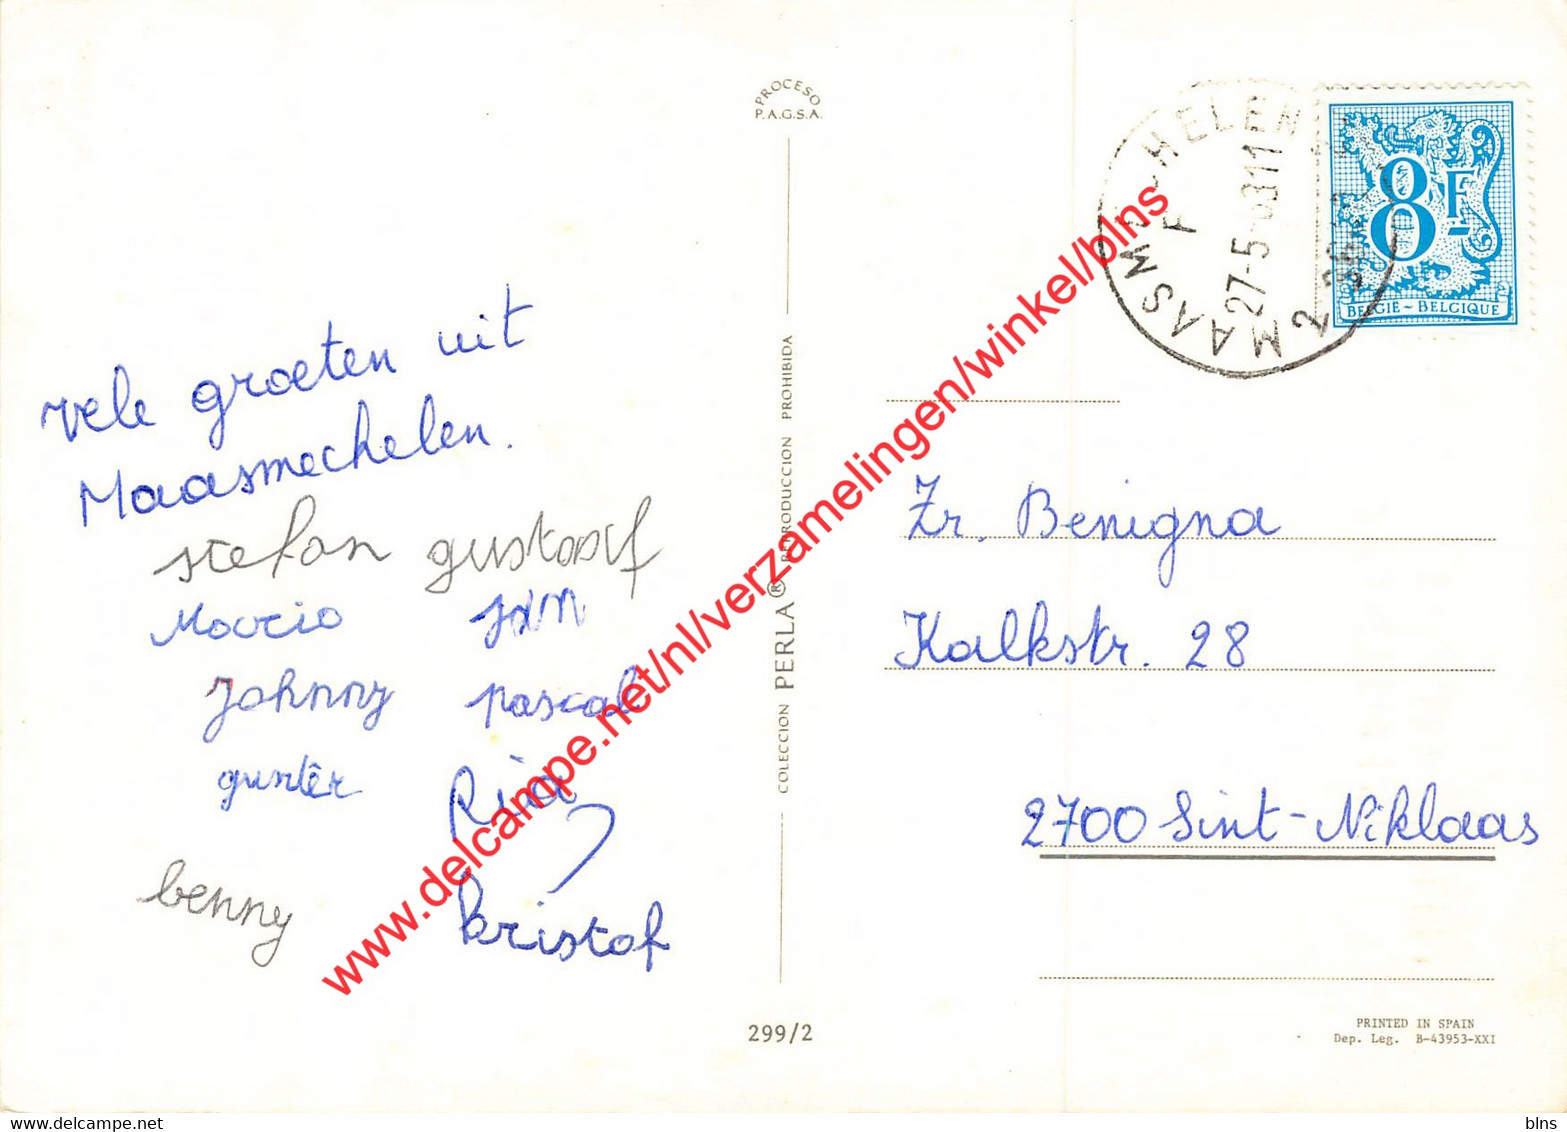 PROCESO
P.A.G.S.A.
vele groeten uit
Maasmechelen.
stefan gustaaf
Maurio Jan
Johnny pascal
guntêr Ria
benny kristof
COLECCION PERLA® REPRODUCCION PROHIBIDA
299/2
MAASMECHELEN
F
27-5
11
2
8F
BELGIE-BELGIQUE
Zr. Benigna
Kalkstr. 28
2700 Sint-Niklaas
PRINTED IN SPAIN
Dep. Leg. B-43953-XXI
www.delcampe.net/nl/verzamelingen/winkel/blns
blns